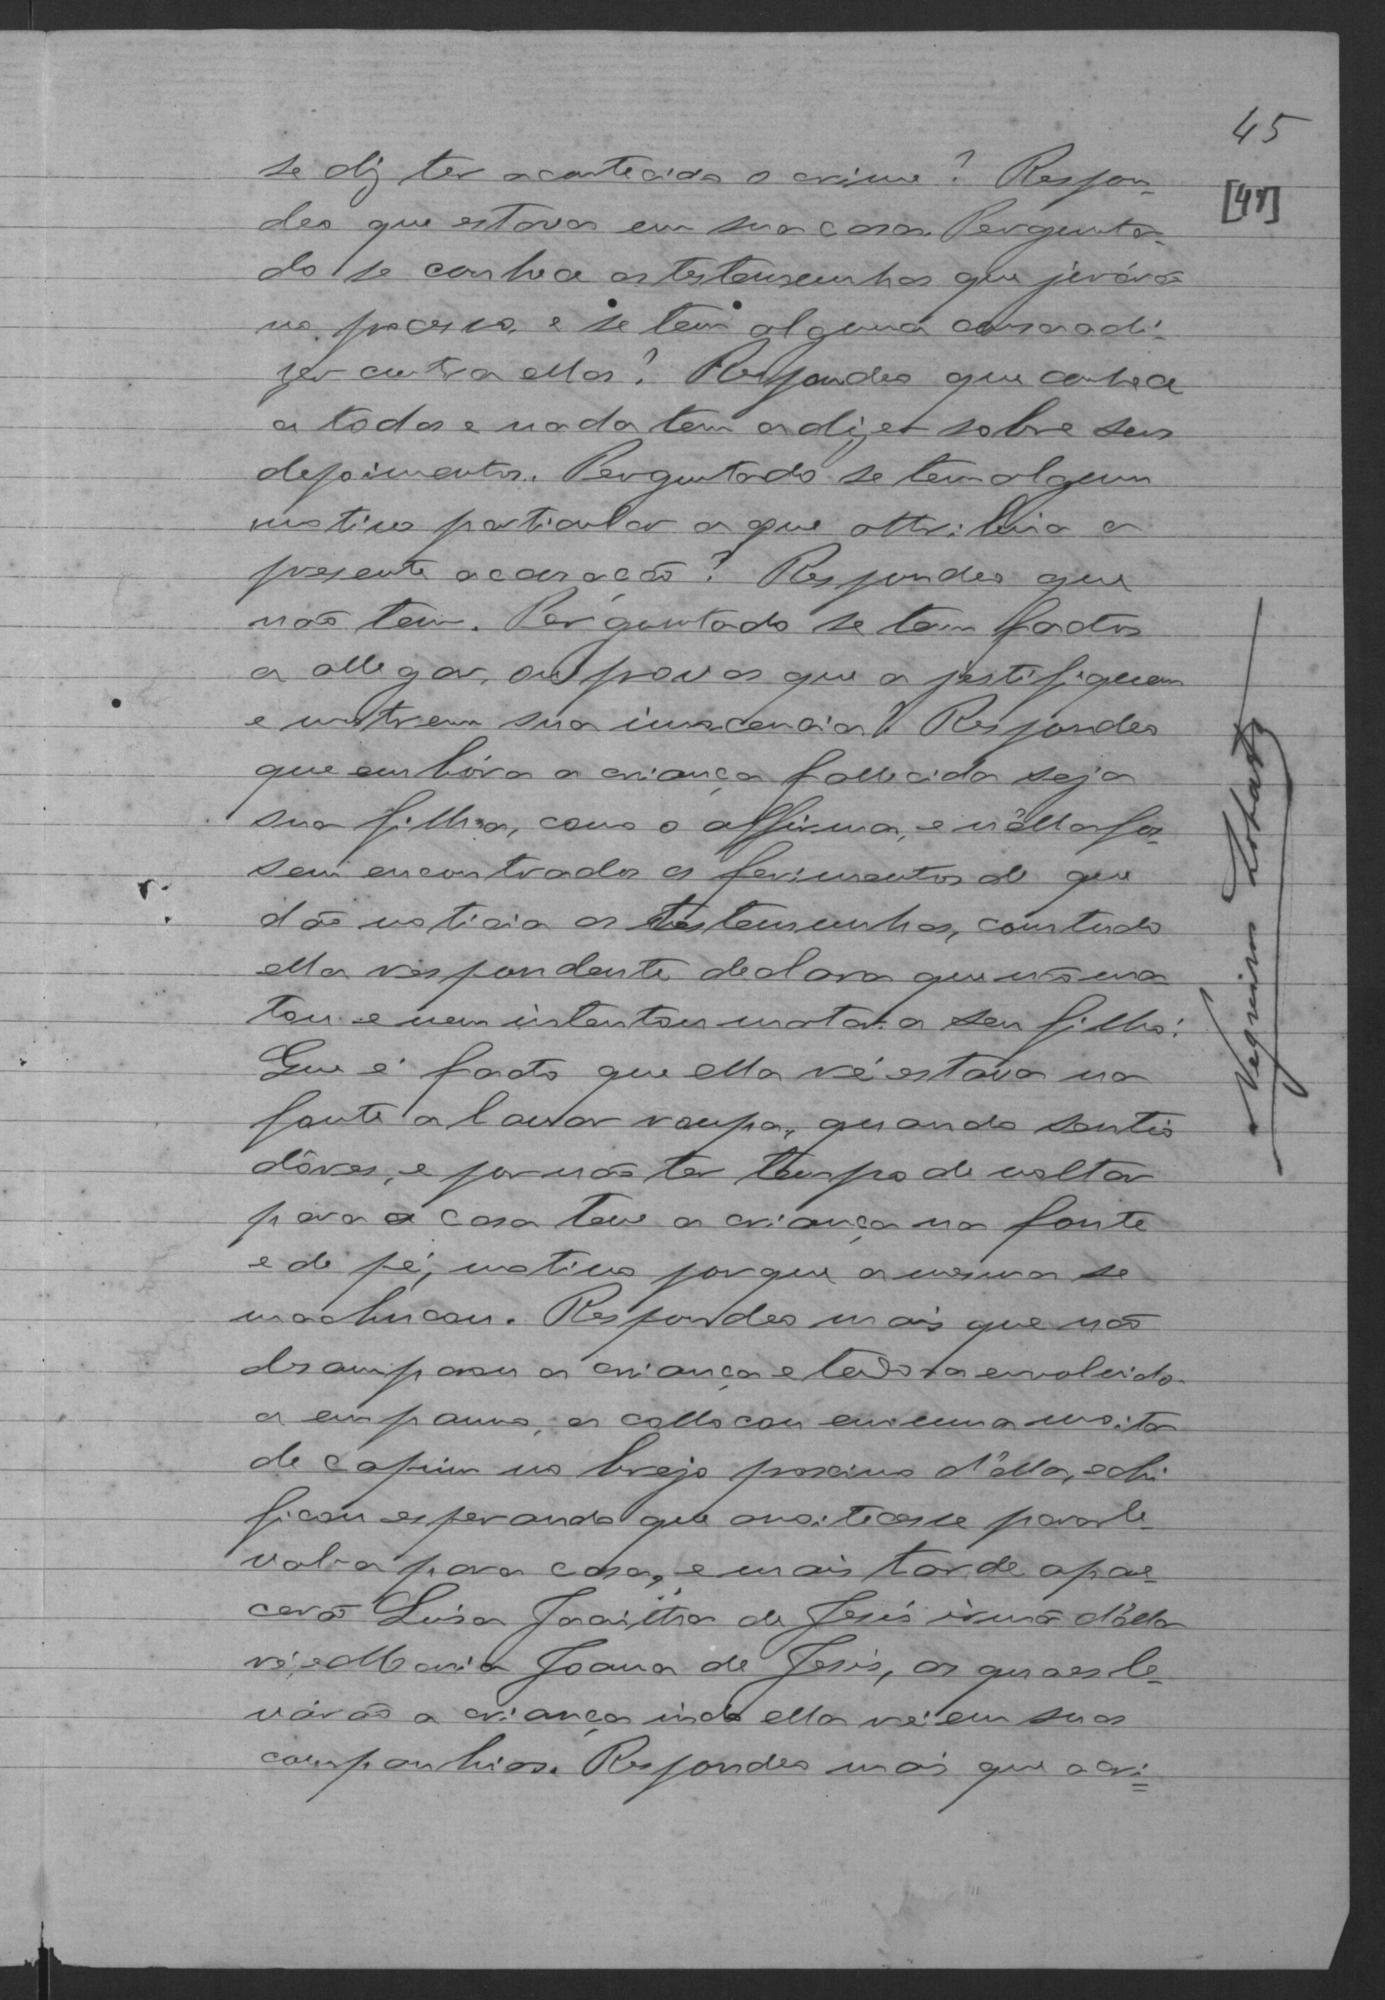 45
[47]
se diz ter acontecido o crime? Respon-
deo que estava em sua casa. Pergunta-
do se conhece as testemunhas que jurárão
no processo, e se tem alguma cousa a di-
zer contra ellas? Respondeo que conhece
a todas e nada tem a dizer sobre seus
depoimentos. Perguntado se tem algum
motivo particular a que attribua a
presente acusação? Respondeo que
não tem. Perguntado se tem factos
a allegar, ou provas que a justifiquem
e mostrem sua inocencia? Respondeo
que embóra a criança fallecida seja
sua filha, como o affirma, e n'ella fos-
sem encontrados os ferimentos de que
dão noticia as testemunhas, comtudo
ella respondente declara que não ma
tou e nem intentou matar a seu filho:
Que é facto que ella ré estava na
fonte a lavar roupa, quando sentio
dôres, e por não ter tempo de voltar
para a casa teve a criança na fonte
e de pé, motivo porque a mesma se
machucou. Respondeo mais que não
desamparou a criança e tendo-a envolvido
a em panno, a collocou em uma moita
de capim no brejo proximo d'ella, e ahi
ficou esperando que anoitecesse para le-
val-a para casa, e mais tarde apare-
cerão Luisa Jacintha de Jesús irmã d'ella
ré, e Maria Joana de Jesús, as quaes le-
várão a criança indo ella ré em suas
companhias. Respondeo mais que a cri-
Negreiros Lobato